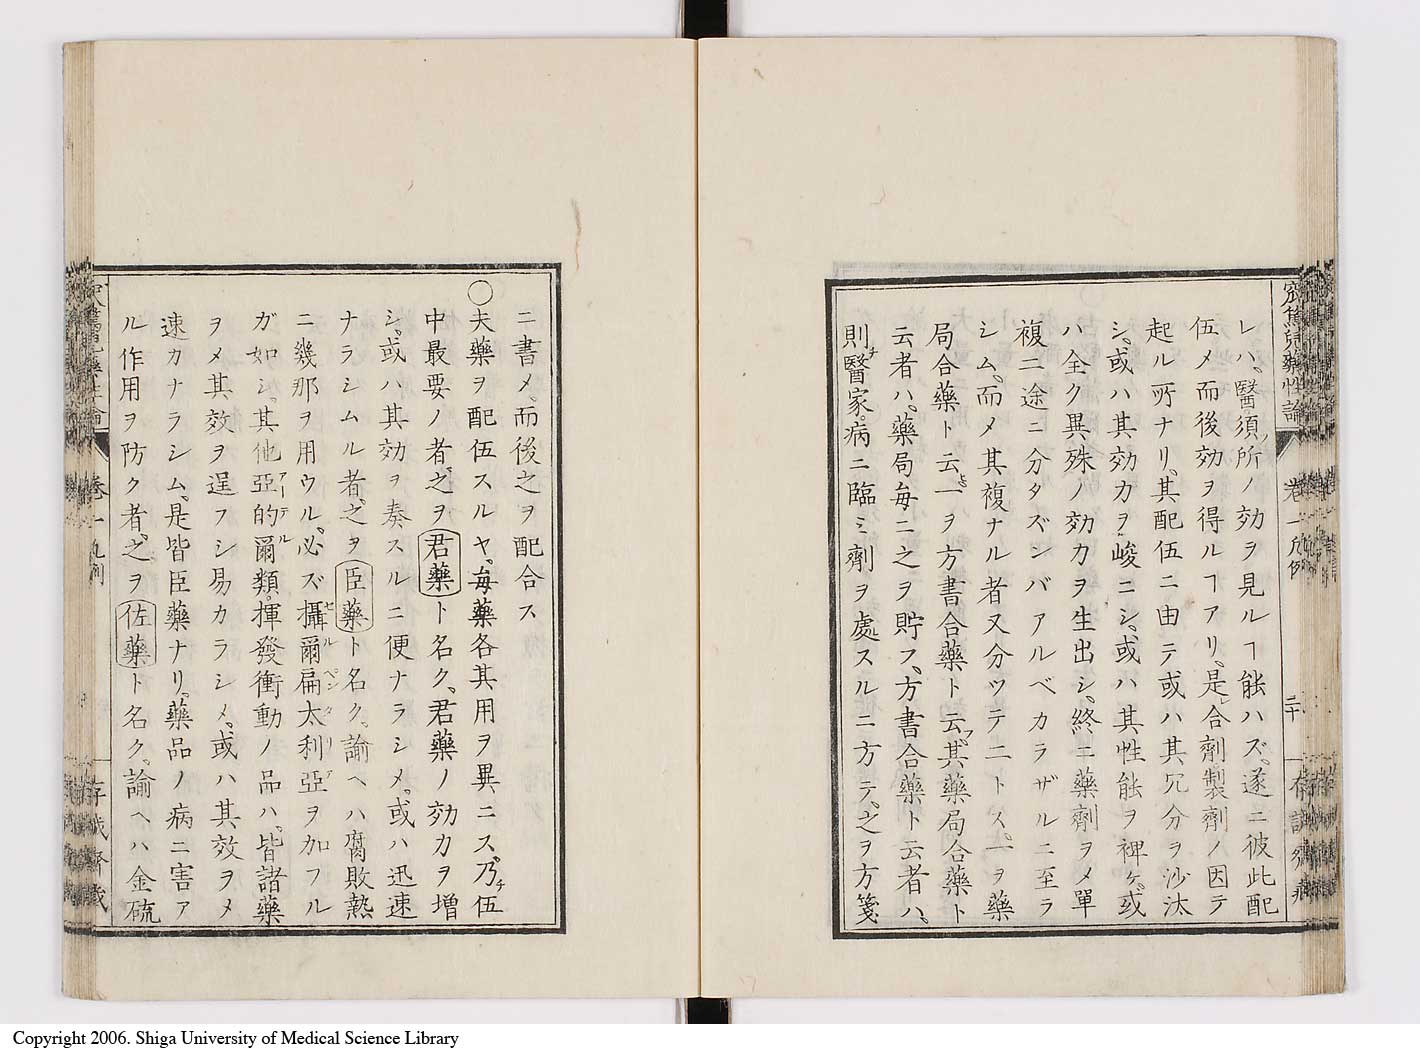 窊篤兒藥性論 卷一 凡例 二十 存誠齋藏
レハ、醫須所ノ効ヲ見ルヿ能ハズ、遂ニ彼此配
伍メ而後効ヲ得ルヿアリ、是レ合劑製劑ノ因テ
起ル所ナリ、其配伍ニ由テ或ハ其冗分ヲ沙汰
シ、或ハ其効力ヲ峻ニシ、或ハ其性能ヲ裨ケ、或
ハ全ク異殊ノ効力ヲ生出シ、終ニ藥劑ヲメ單
複二途ニ分タズンバアルベカラザルニ至ラ
シム、而メ其複ナル者又分ツテ二トス、一ヲ藥
局合藥ト云、一ヲ方書合藥ト云フ、其藥局合藥ト
云者ハ、藥局毎ニ之ヲ貯フ、方書合藥ト云者ハ、
則チ醫家、病ニ臨ミ劑ヲ處スルニ方テ、之ヲ方箋
ニ書メ、而後之ヲ配合ス
〇夫藥ヲ配伍スルヤ、毎藥各其用ヲ異ニス、乃チ伍
中最要ノ者、之ヲ君藥ト名ク、君藥ノ効力ヲ増
シ、或ハ其効ヲ奏スルニ便ナラシメ、或ハ迅速
ナラシムル者、之ヲ臣藥ト名ク、諭ヘハ腐敗熱
ニ幾那ヲ用ウル、必ズ攝爾扁太利亞ヲ加フル
ガ如シ、其他亞的爾類、揮發衝動ノ品ハ、皆諸藥
ヲメ其效ヲ逞フシ易カラシメ、或ハ其效ヲメ
速カナラシム、是皆臣藥ナリ、藥品ノ病ニ害ア
ル作用ヲ防ク者、之ヲ佐藥ト名ク、諭ヘハ金硫
卷一 凡例 存誠齋藏
Copyright 2006. Shiga University of Medical Science Library